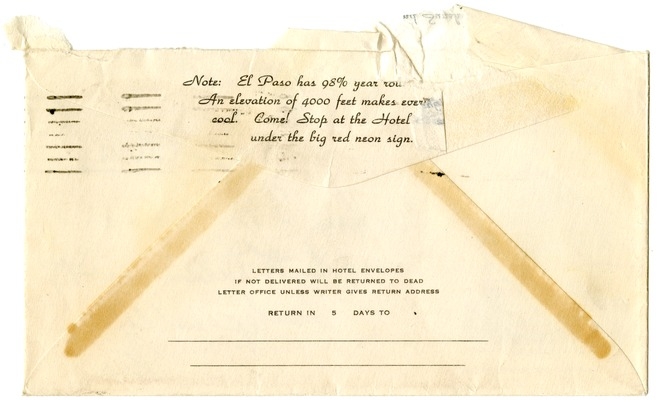 Note: El Paso has 98% year
An elevation of 4000 feet makes
cool. Come! Stop at the Hotel
under the big red neon sign.
LETTERS MAILED IN HOTEL ENVELOPES
IF NOT DELIVERED WILL BE RETURNED TO DEAD
LETTER OFFICE UNLESS WRITER GIVES RETURN ADDRESS
RETURN IN 5 DAYS TO